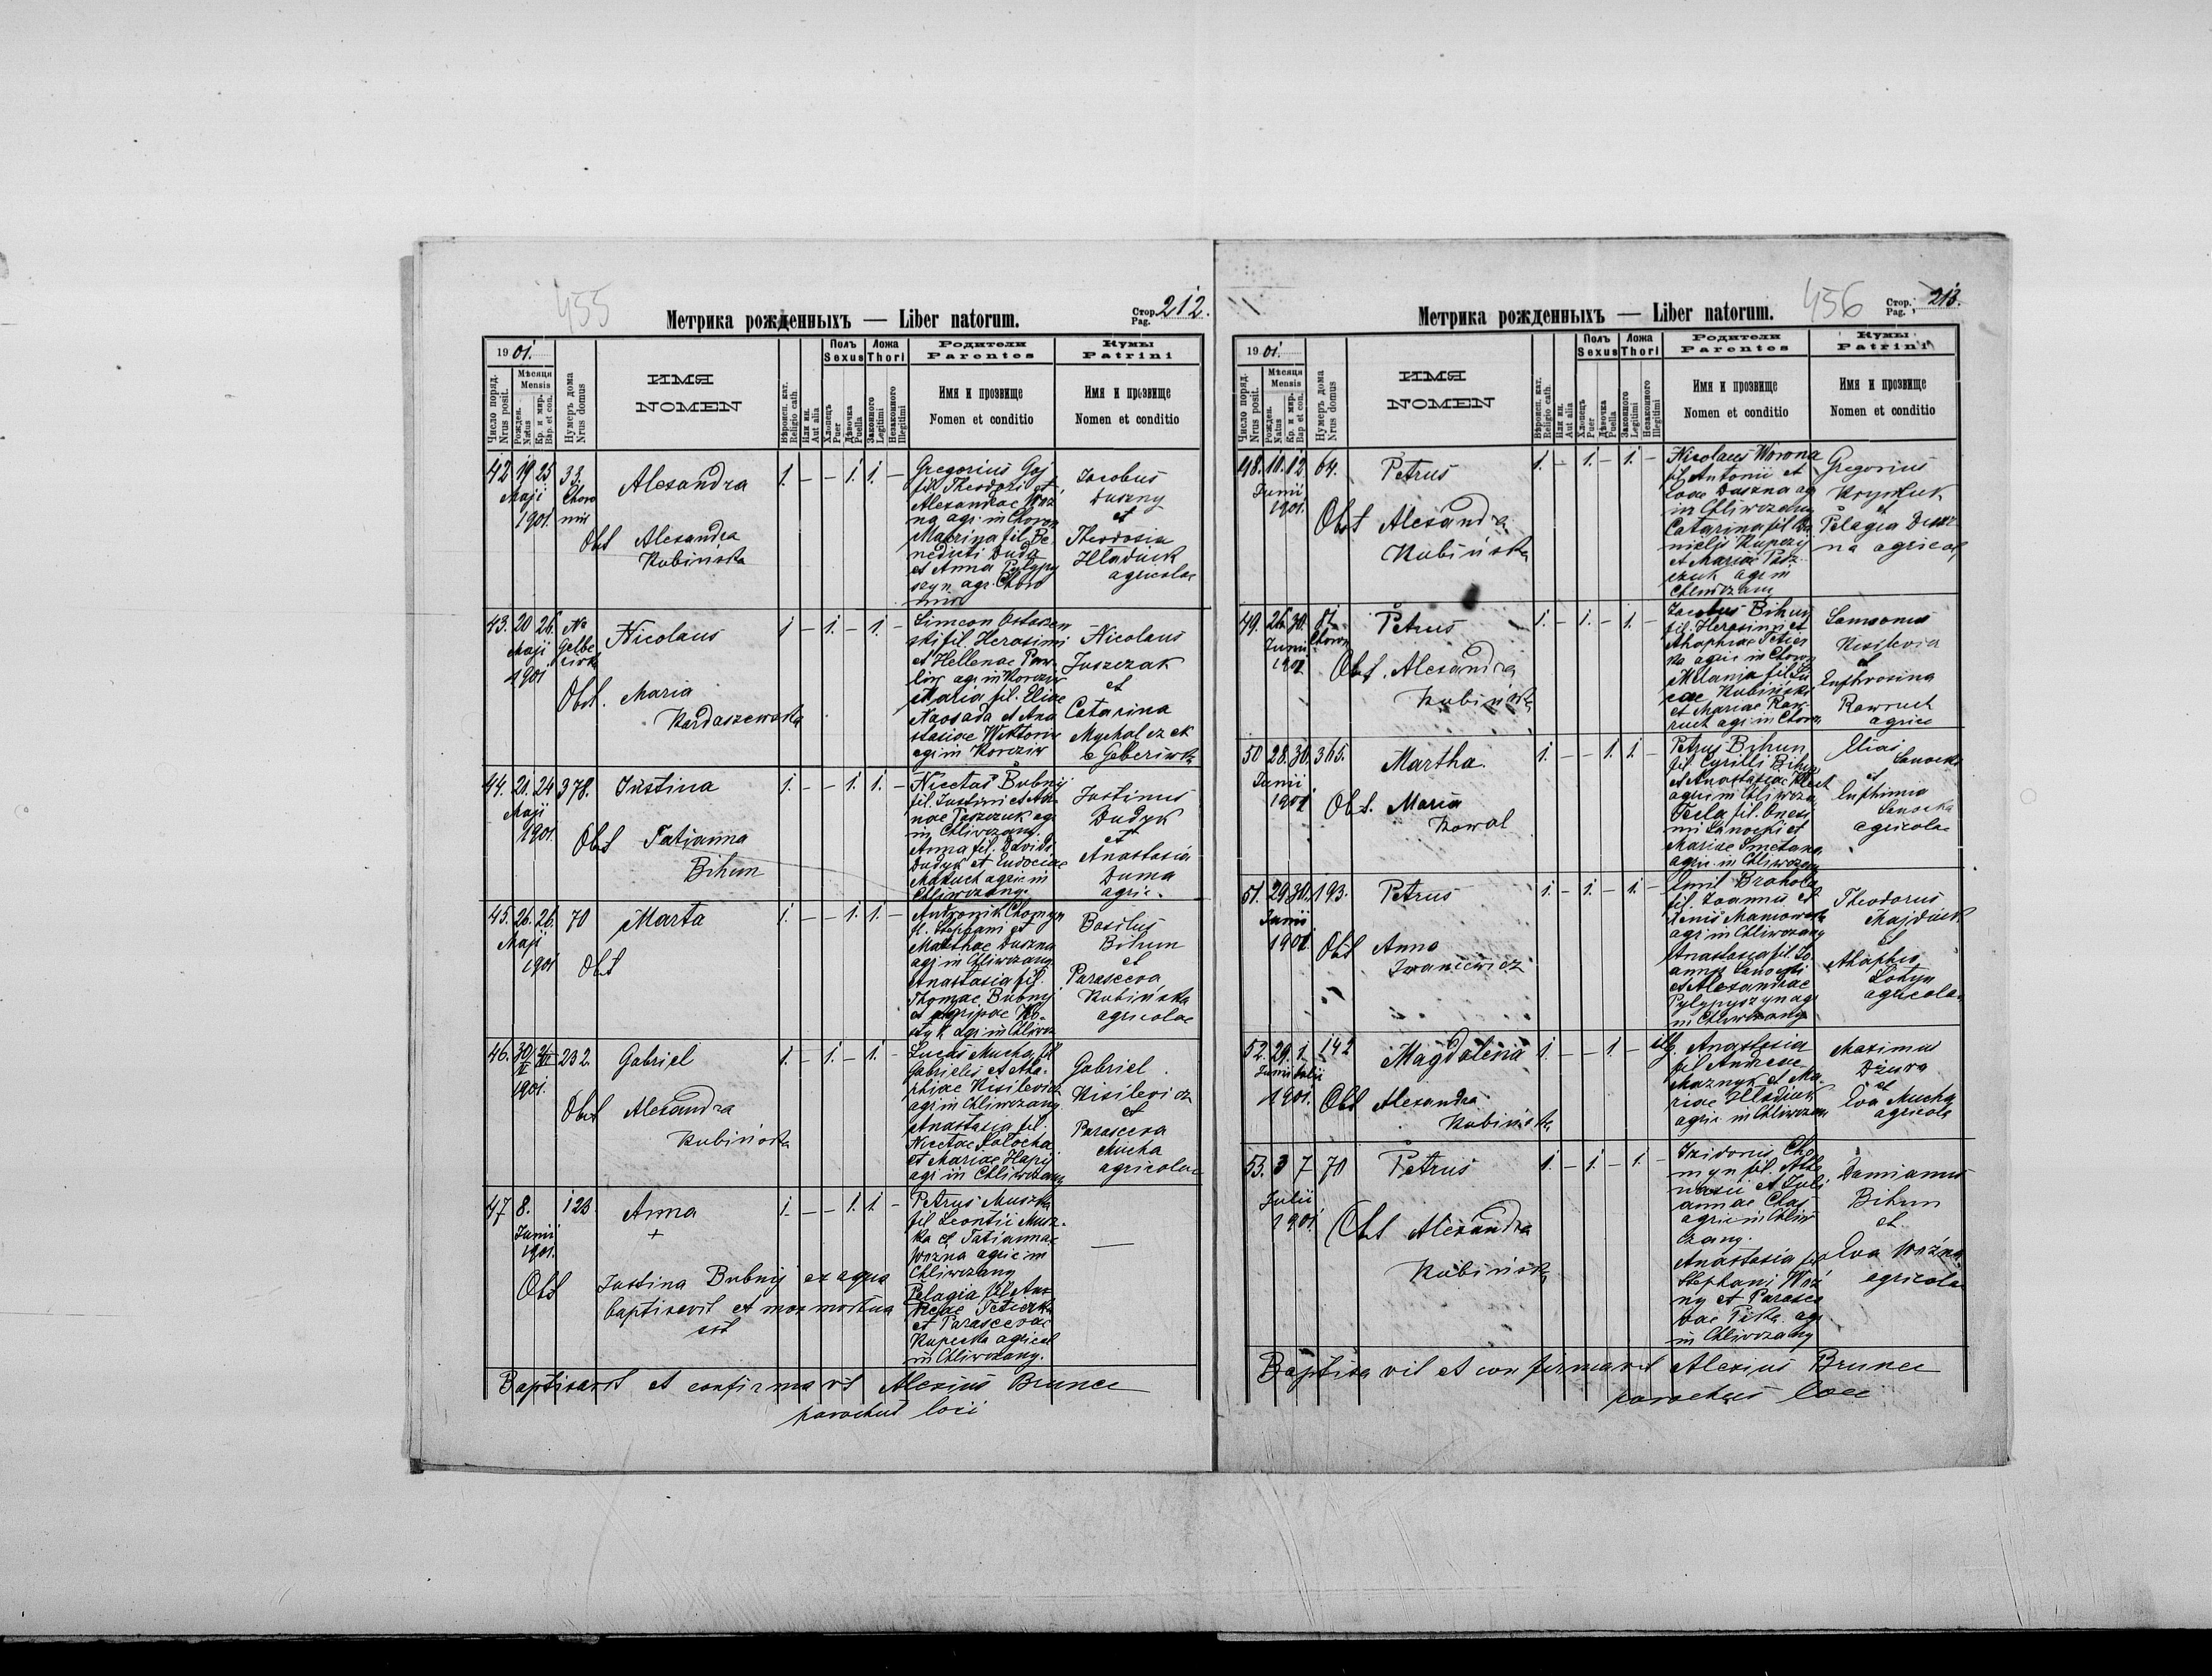 455
Метрика рожденныхъ — Liber natorum.
Стор. 212.
Pag.
19 01.
Число поряд.
Nrus posit.
Мѣсяця
Mensis
Рожден.
Natus
Кр. и мир.
Bap. et con.
Нумеръ дома
Nrus domus
ИМЯ
NOMEN
Вѣроисп. кат.
Religio cath.
Или ин.
Aut alia
Полъ
Sexus
Хлопецъ
Puer
Дѣвочка
Puella
Ложа
Thori
Законного
Legitimi
Незаконного
Illegitimi
Родители
Parentes
Имя и прозвище
Nomen et conditio
Кумы
Patrini
Имя и прозвище
Nomen et conditio
42. 19. 25. 33.
Maji
1901.
Alexandra
1. — — 1. 1. —
Obst Alexandra
Kubińska
Gregorius Goj
fil. Theodori et
Alexandrae Woź
na agr. in Chorow
Macrina fil. Be
nedicti Duda
et Anna
agr.
Jacobus
Duszny
et
Theodosia
Hladiuk
agricolae
43. 20 26. Na
Maji
1901
Nicolaus
1 — 1. — 1. —
Obst. Maria
Kardaszewska
Simeon
fil. Herasimi
et Hellenae Paw-
liw agr. in
Maria fil. Eliae
et Ana
stasiae
agr. in
Nicolaus
Juszczak
et
Catarina
Mychalczak
44. 21. 24 378.
Maji
1901.
Justina
1. — — 1. 1. —
Obst Tatianna
Bihun
Nicetas Bubnij
fil. Justini et An-
nae Paszczuk agr.
in Chliwczany.
Anna fil. Davidi
Dudyk et Eudociae
Makuch agric in
Chliwczany.
Justinus
Dudyk
et
Anastasia
Duma
agric.
45. 26. 26. 70
Maji
1901
Marta
1. — — 1. 1. —
Obst
Andronik Chomyn
fil. Stephani et
Marthae Duszna
agr in Chliwczany.
Anastasia fil.
Thomae Bubnij
et
agr in
Basilius
Bihun
et
Parasceva
Kubińska
agricolae
46. 232.
1901.
Gabriel
1. — 1. — 1. —
Obst Alexandra
Kubińska
Lucas Mucha fil
Gabrielis et Aha-
phiae Kisilevicz
agr in Chliwczany.
Anastasia fil.
Nicetae
et Mariae Hapij
agr in Chliwczany
Gabriel
Kisilevicz
et
Parasceva
Mucha
agricolae
47 8. 123
Junii
1901.
Anna
+
1. — — 1. 1. —
Obst Justina Bubnij ex aqua
baptisavit et mox mortua
est
Petrus Muszka
fil Leontii Musz-
ka et Tatiannae
Woźna agric in
Chliwczany
Pelagia fil An-
dreae
et Parascevae
agricol
in Chliwczany.
—
Baptisavit et confirmavit Alexius Brunec
parochus loci
456
Метрика рожденныхъ — Liber natorum.
Стор. 213.
Pag.
19 01.
Число поряд.
Nrus posit.
Мѣсяця
Mensis
Рожден.
Natus
Кр. и мир.
Bap et con.
Нумеръ дома
Nrus domus
ИМЯ
NOMEN
Вѣроисп. кат.
Religio cath.
Или ин.
Aut alia
Полъ
Sexus
Хлопецъ
Puer
Дѣвочка
Puella
Ложа
Thori
Законного
Legitimi
Незаконного
Illegitimi
Родители
Parentes
Имя и прозвище
Nomen et conditio
Кумы
Patrini
Имя и прозвище
Nomen et conditio
48. 10. 12. 64.
Junii
1901.
Petrus
1. — 1. — 1. —
Obst Alexandra
Kubińska
Nicolaus Worona
fil Antonii et
Evae Duszna ag
in Chliwczany
Catarina fil Da
nielis
et Mariae
agr in
Gregorius
et
Pelagia Dusz-
na agricol
49. 26. 30. 81
Junii
1901
Petrus
1. — 1. — 1 —
Obst. Alexandra
Kubińska
Jacobus Bihun
fil. Herasimi et
Ahaphiae
agric in Chorow
Melania fil Lu
cae Kubiński
et Mariae Raw-
ruch agr in Chorow
Samsonus
Kisilevicz
et
Euphrosina
Rawruch
agric
50 28. 30. 365.
Junii
1901
Martha.
1. — — 1. 1 —
Obst. Maria
Kowal
Petrus Bihun
fil Cyrilli Bihun
et Anastasiae
agric in
Tecla fil. Onesi
mi Sanocki et
Mariae Smetana
agric in Chliwczany
Elias
Sanocki
et
Euphimia
Sanocka
agricolae
51. 29 30. 193.
Junii
1901
Petrus
1 — 1. — 1 —
Obst Anna
Iwaniewicz
Emil
fil. Joannis et
agr in Chliwczany
Anastasia fil. Jo
annis Sanocki
et Alexandrae
Pylypyszyn agr
in Chliwczany
Theodorus
Majdiuk
et
agricolae
52. 29. 1. 142
Junii Julii
1901.
Magdalena
1. — — 1. — illg.
Obst Alexandra
Kubińska
Anastasia
fil Andreae
et Ma-
riae Hladiuk
agric in Chliwczany
Maximus
Dziura
et
Eva Mucha
agricolae
53. 3 7 70
Julii
1901.
Petrus
1. — 1. — 1. —
Obst Alexandra
Kubińska
Izidorus Cho
myn fil. Atha
nasii et Juli
annae
agric in Chliw
czany.
Anastasia fil
Stephani Woź
ny et Parasce
vae agr
in Chliwczany
Damianus
Bihun
et
Eva Woźna
agricolae
Baptisavit et confirmavit Alexius Brunec
parochus loci